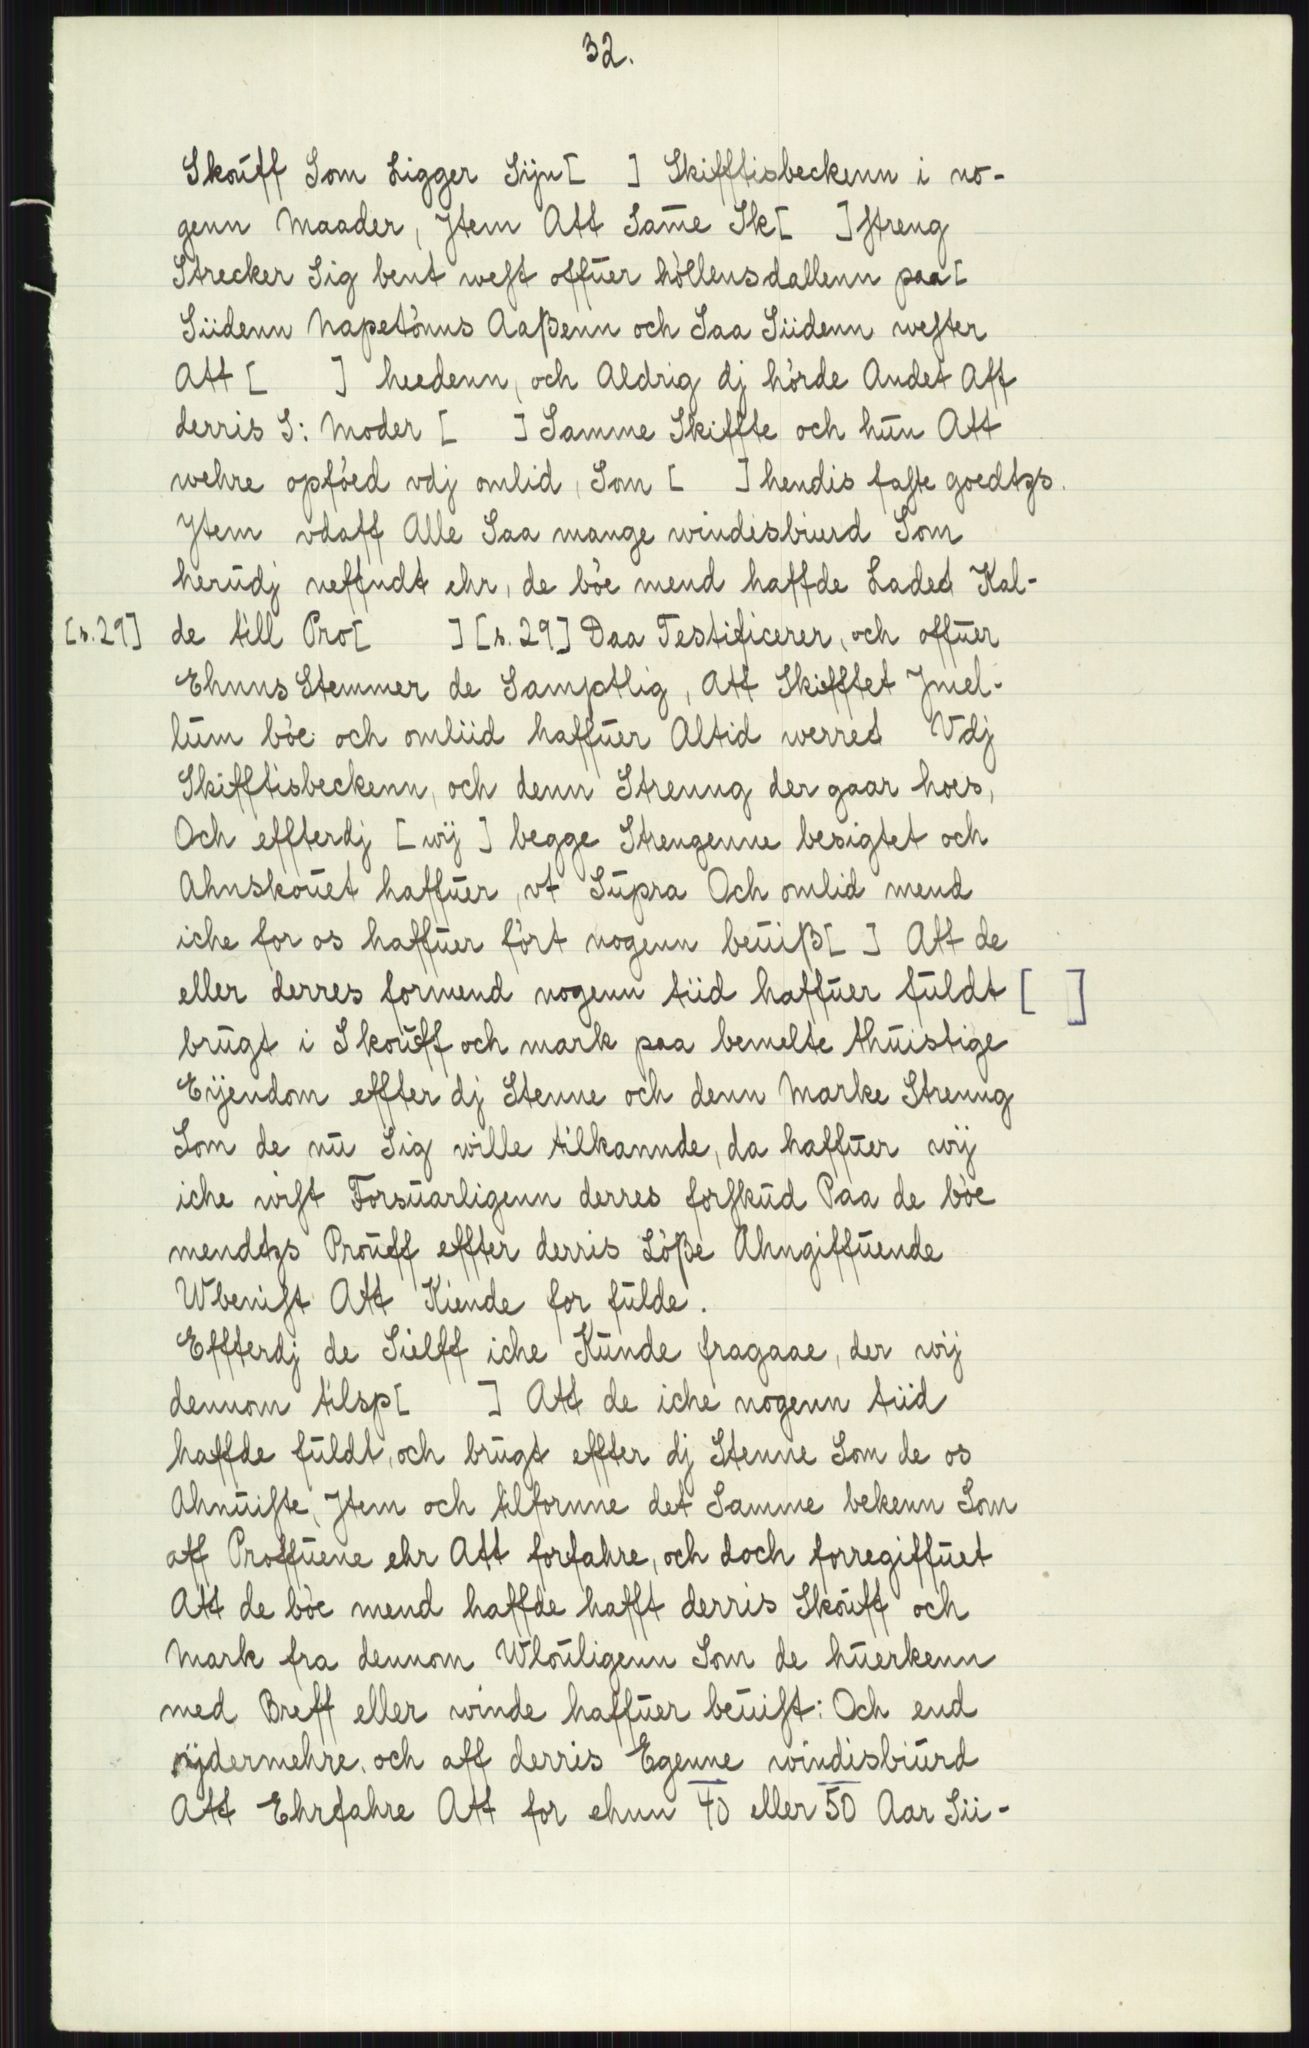 32.
Skouff Som Ligger Sijn[ ] Skifftisbeckenn i no-
genn Maader, Jtem Att Same Sk[ ]streng
Strecker Sig bent west offuer höllensdallenn paa[
Siidenn Napetönns Aaßenn och Saa Siidenn wester
Att [ ] heedenn, och Aldrig dj hörde Andet Aff
derris S: Moder [ ] Samme Skiffte och hun Att
wehre opföed vdj omlid, Som [ ] hendis faste goedtzs.
Jtem vdaff Alle Saa mange windisbiurd Som
herudj neffndt ehr, de böe mend haffde Laded Kal-
[s.29] de till Pro[ ] [s.29] Daa Testificerer, och offuer
Ehnns Stemmer de Samptlig, Att Skifftet Jmel-
lum böe och omliid haffuer Altid werred Vdj
Skifftisbeckenn, och denn Strenng der gaar hoes,
Och effterdj [wij] begge Strengenne besigtet och
Ahnskouet haffuer, vt Supra Och omlid mend
iche for os haffuer fört nogenn beuiß[ ] Att de
eller derres formend nogenn tiid haffuer fuldt [ ]
brugt i Skouff och mark paa bemelte thuistige
Eÿendom effter dj Stenne och denn Marke Strenng
Som de nu Sig wille tilkannde, da haffuer wij
iche wist Forsuarligenn derres forskud Paa de böe
mendtzs Prouff effter derris Löße Ahngiffuende
Wbenist Att Kiende for fulde.
Effterdj de Sielff iche Kunde fragaae, der wij
dennom tilsp[ ] Att de iche nogenn tiid
haffde fuldt, och brugt effter dj Stenne Som de os
Ahnuiste, Jtem och tilfornne det Samme bekenn Som
aff Proffuene ehr Att forfahre, och doch forregiffuet
Att de böe mend haffde hafft derris Skouff och
Mark fra dennom Wlouligenn Som de huerkenn
med Breff eller winde haffuer beuist: Och end
ÿdermehre, och aff derris Egenne windisbiurd
Att Ehrfahre Att for ehnn 40 eller 50 Aar Sii-